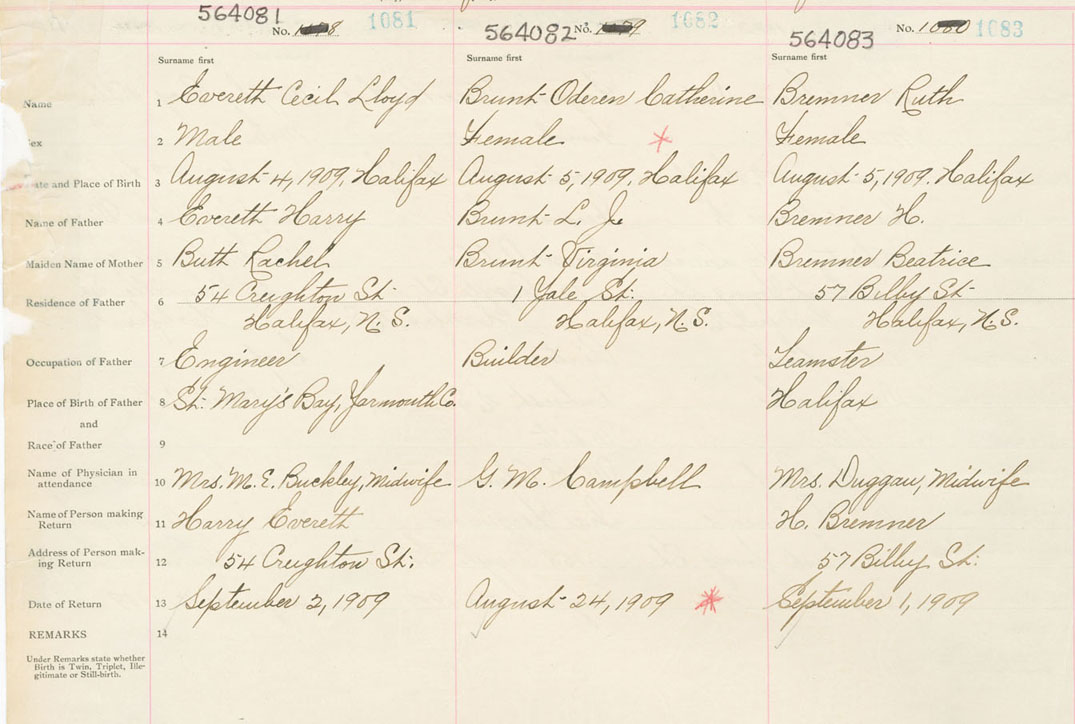 564081 No. 1081
564082 No. 1082
564083 No. 1083
Surname first Surname first Surname first
Name 1 Evereth Cecil Lloyd Brunt Oderen Catherine Bremner Ruth
ex 2 Male Female Female
ate and Place of Birth 3 August 4, 1909, Halifax August 5, 1909. Halifax August 5, 1909. Halifax
Name of Father 4 Evereth Harry Brunt L. J. Bremner H.
Maiden Name of Mother 5 Buth Rachel Brunt Virginia Bremner Beatrice
Residence of Father 6 54 Creighton St. 1 Yale St. 57 Bilby St.
Halifax, N. S. Halifax, N. S. Halifax, N. S.
Occupation of Father 7 Engineer Builder Teamster
Place of Birth of Father 8 St. Mary's Bay, Yarmouth Co. Halifax
and
Race of Father 9
Name of Physician in
attendance 10 Mrs. M. E. Buckley, Midwife G. M. Campbell Mrs. Duggau, Midwife
Name of Person making
Return 11 Harry Evereth H. Bremner
Address of Person mak-
ing Return 12 54 Creighton St. 57 Bilby St.
Date of Return 13 September 2, 1909 August 24, 1909 September 1, 1909
REMARKS 14
Under Remarks state whether
Birth is Twin, Triplet, Ille-
gitimate or Still-birth.